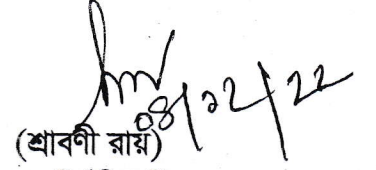 ০৪/১২/২২
(শ্রাবণী রায়)